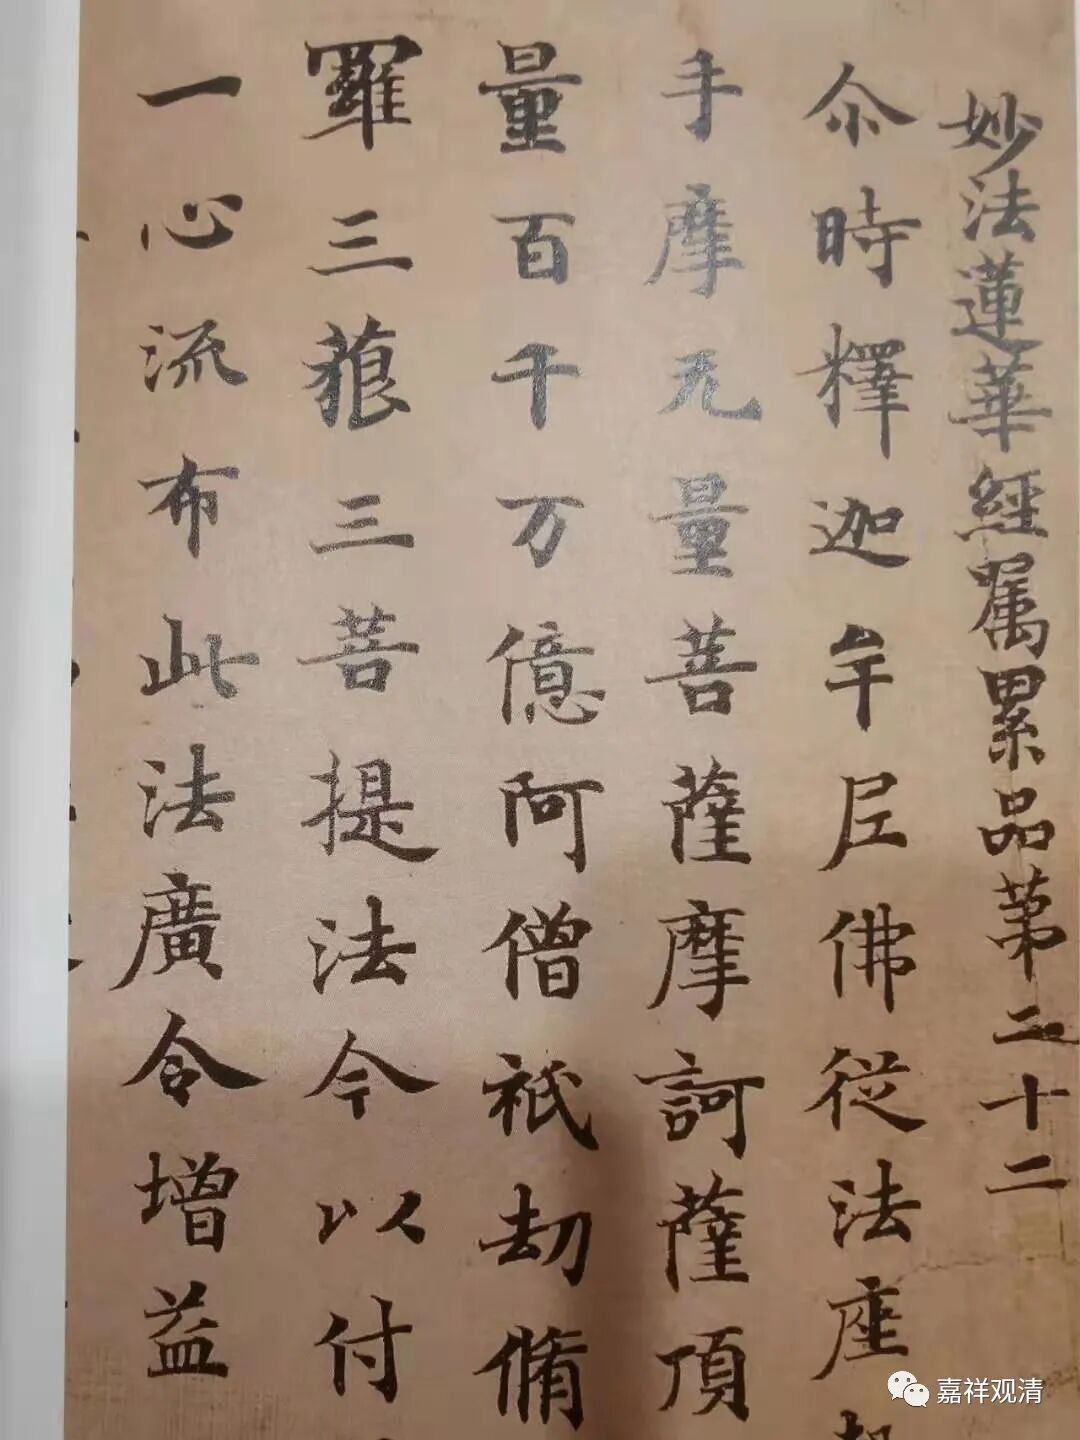 妙法蓮華經嘱累品苐二十二
尒時釋迦牟尼佛從法座
手摩无量菩薩摩訶薩頂
量百千万億阿僧祇劫脩
羅三藐三菩提法今以付
一心流布此法廣令增益
嘉祥观清